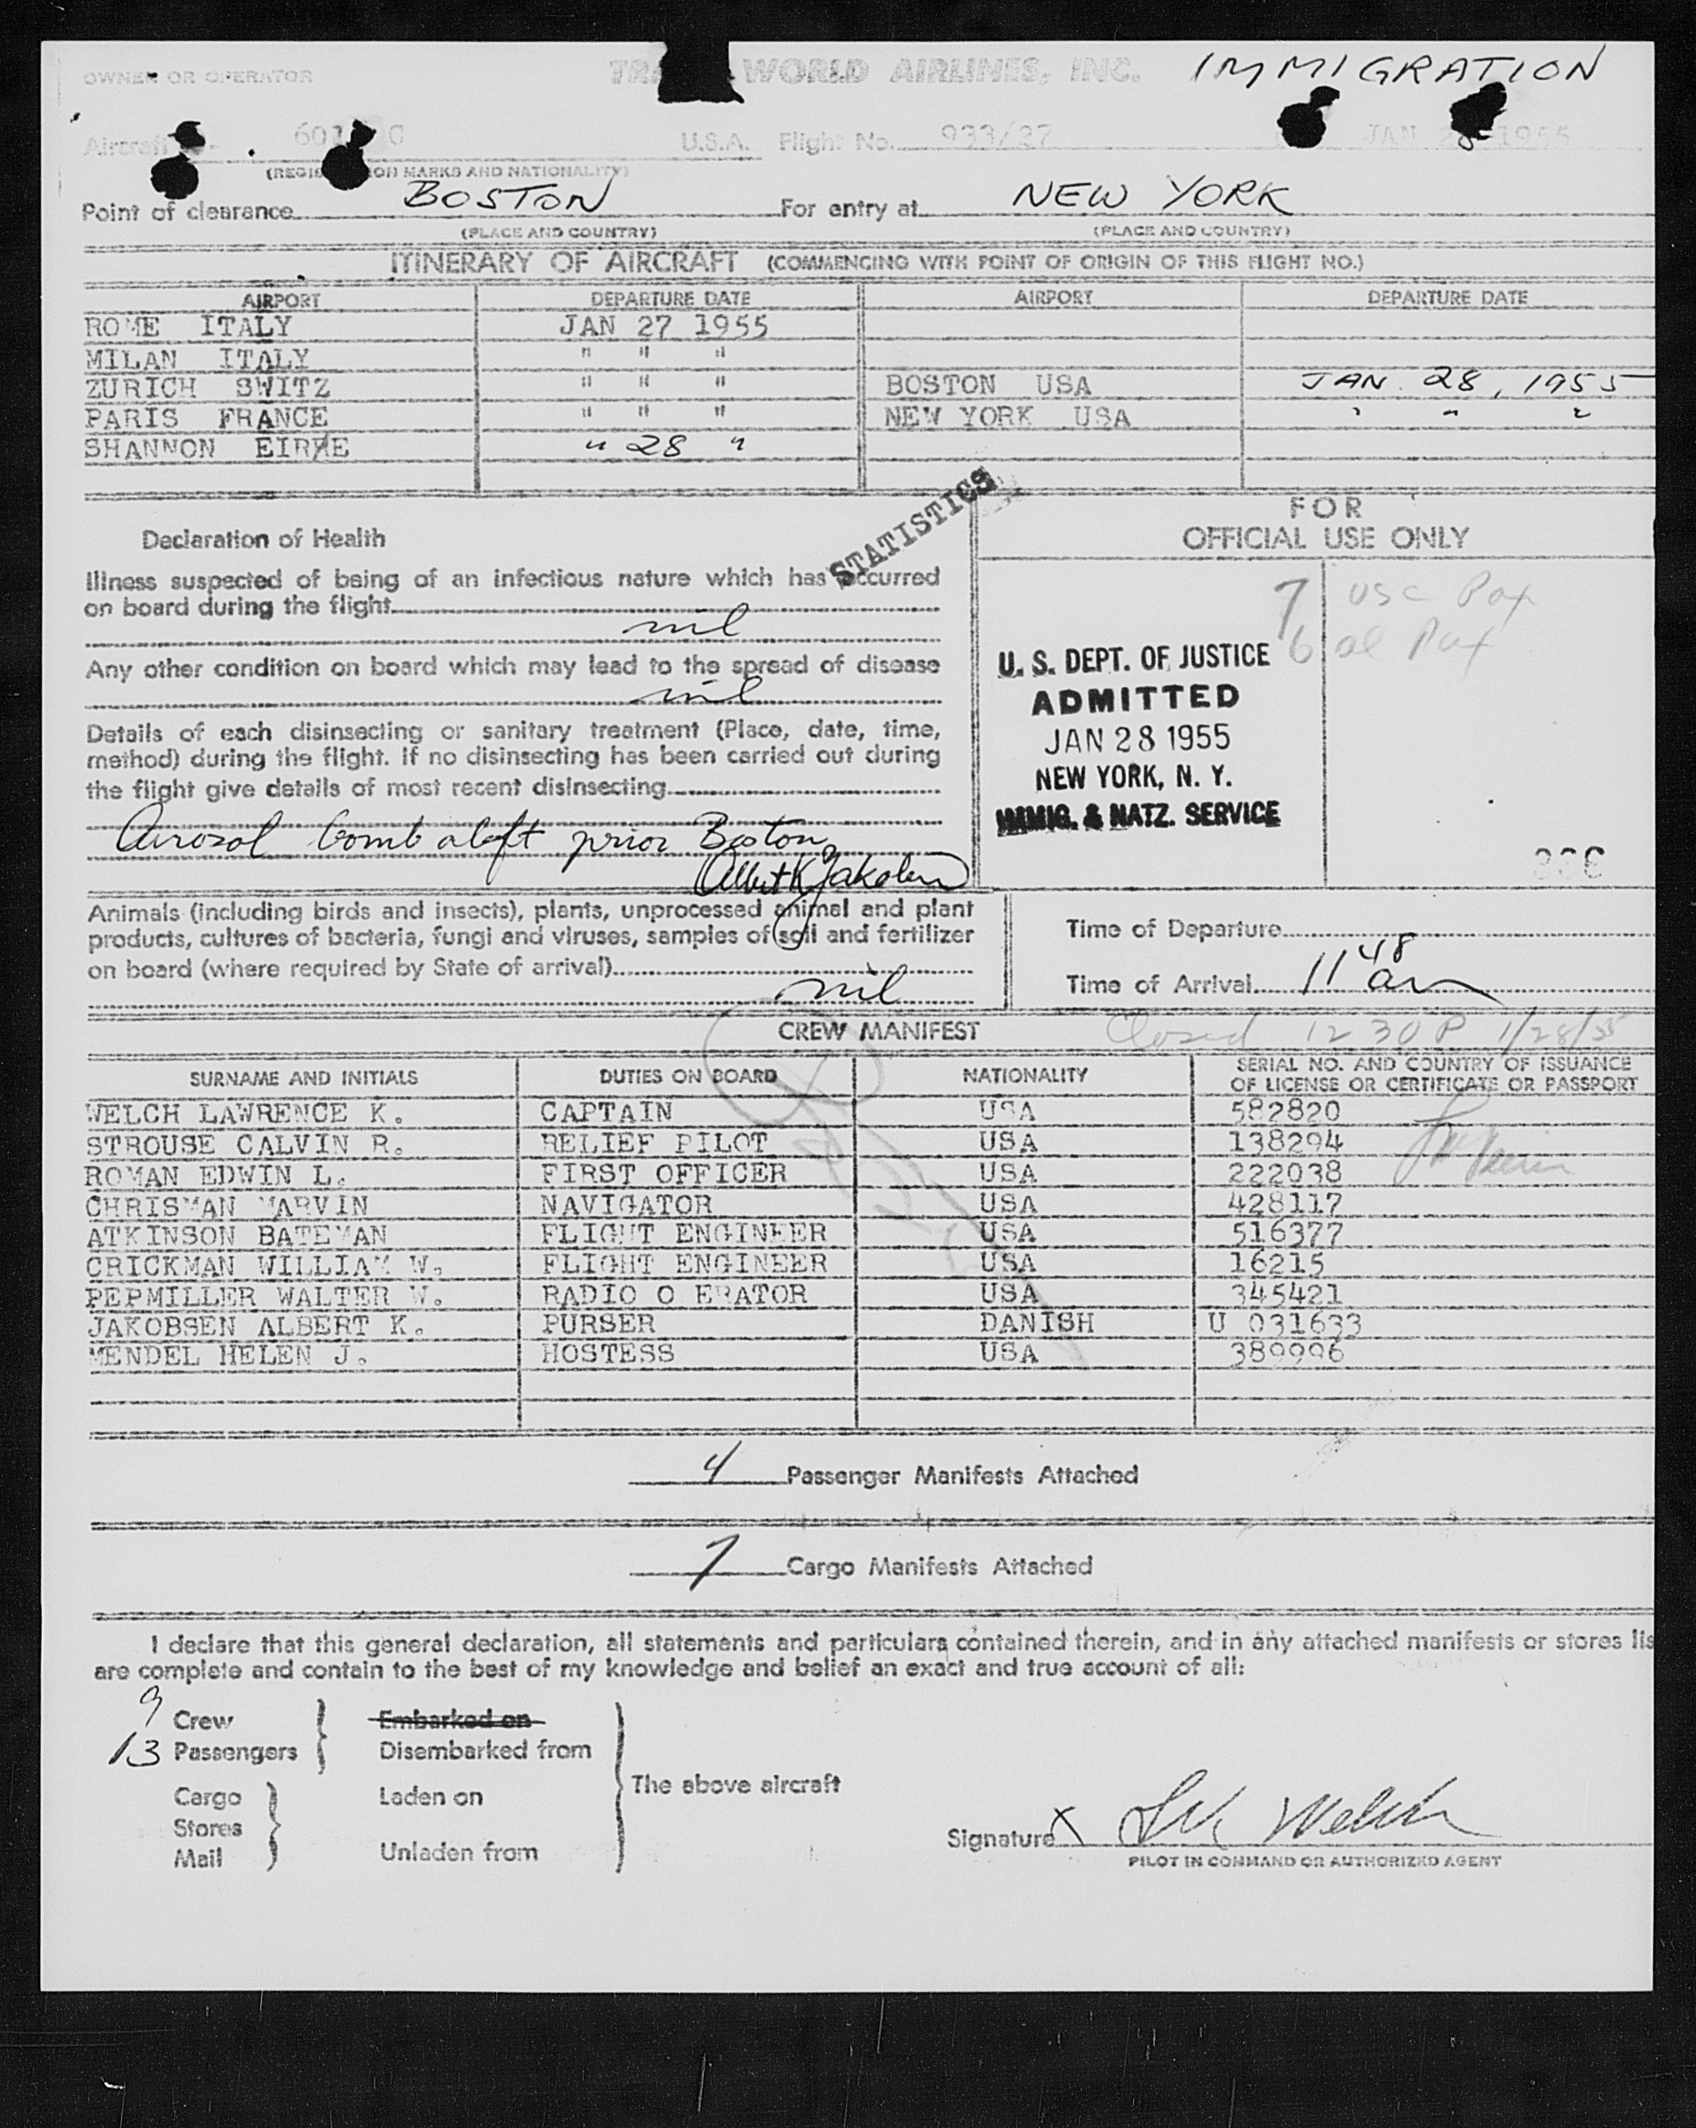 OWNER OR OPERATOR WORLD AIRLINES, INC. IMMIGRATION
Aircraft U.S.A. Flight No. 933/27 JAN 1955
MARKS AND NATIONALITY)
Point of clearance BOSTON For entry at NEW YORK
(PLACE AND COUNTRY) (PLACE AND COUNTRY)
ITINERARY OF AIRCRAFT (COMMENCING WITH POINT OF ORIGIN OF THIS FLIGHT NO.)
AIRPORT DEPARTURE DATE AIRPORT DEPARTURE DATE
ROME ITALY JAN 27 1955
MILAN ITALY " " "
ZURICH SWITZ " " " BOSTON USA JAN. 28, 1955
PARIS FRANCE " " " NEW YORK USA " " "
SHANNON EIRE " 28 "
STATISTICS
FOR
OFFICIAL USE ONLY
Declaration of Health
Illness suspected of being of an infectious nature which has occurred
on board during the flight
nil
Any other condition on board which may lead to the spread of disease
nil
Details of each disinsecting or sanitary treatment (Place, date, time,
method) during the flight. If no disinsecting has been carried out during
the flight give details of most recent disinsecting
Aerosol bomb aloft prior Boston
Albert K Jakobsen
7 USC Pax
6 al Pax
U. S. DEPT. OF JUSTICE
ADMITTED
JAN 28 1955
NEW YORK, N. Y.
IMMIG. & NATZ. SERVICE
Animals (including birds and insects), plants, unprocessed animal and plant
products, cultures of bacteria, fungi and viruses, samples of soil and fertilizer
on board (where required by State of arrival)
nil
Time of Departure
Time of Arrival 11 48 am
CREW MANIFEST Closed 12 30 P 1/28/55
SURNAME AND INITIALS DUTIES ON BOARD NATIONALITY SERIAL NO. AND COUNTRY OF ISSUANCE
OF LICENSE OR CERTIFICATE OR PASSPORT
WELCH LAWRENCE K. CAPTAIN USA 582820
STROUSE CALVIN R. RELIEF PILOT USA 138294
ROMAN EDWIN L. FIRST OFFICER USA 222038
CHRISMAN MARVIN NAVIGATOR USA 428117
ATKINSON BATEMAN FLIGHT ENGINEER USA 516377
CRICKMAN WILLIAM W. FLIGHT ENGINEER USA 16215
PEPMILLER WALTER W. RADIO O ERATOR USA 345421
JAKOBSEN ALBERT K. PURSER DANISH U 031633
MENDEL HELEN J. HOSTESS USA 389996
4 Passenger Manifests Attached
7 Cargo Manifests Attached
I declare that this general declaration, all statements and particulars contained therein, and in any attached manifests or stores lis
are complete and contain to the best of my knowledge and belief an exact and true account of all:
9 Crew Embarked on
13 Passengers Disembarked from
The above aircraft
Cargo Laden on
Stores
Mail Unladen from
Signature X LK Welch
PILOT IN COMMAND OR AUTHORIZED AGENT